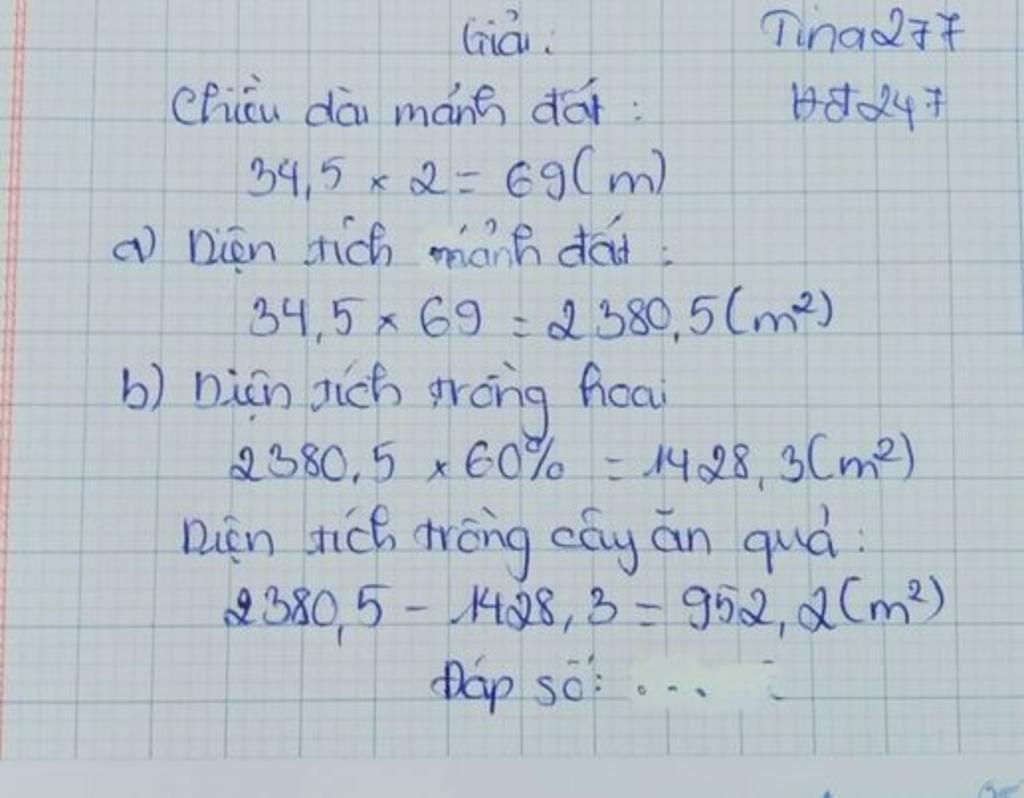 Giải:
Tina277
Hđ247
Chiều dài mảnh đất:
34,5 × 2 = 69(m)
a) Diện tích mảnh đất:
34,5 × 69 = 2380,5(m²)
b) Diện tích trồng hoa:
2380,5 × 60% = 1428,3(m²)
Diện tích trồng cây ăn quả:
2380,5 - 1428,3 = 952,2(m²)
Đáp số: ...